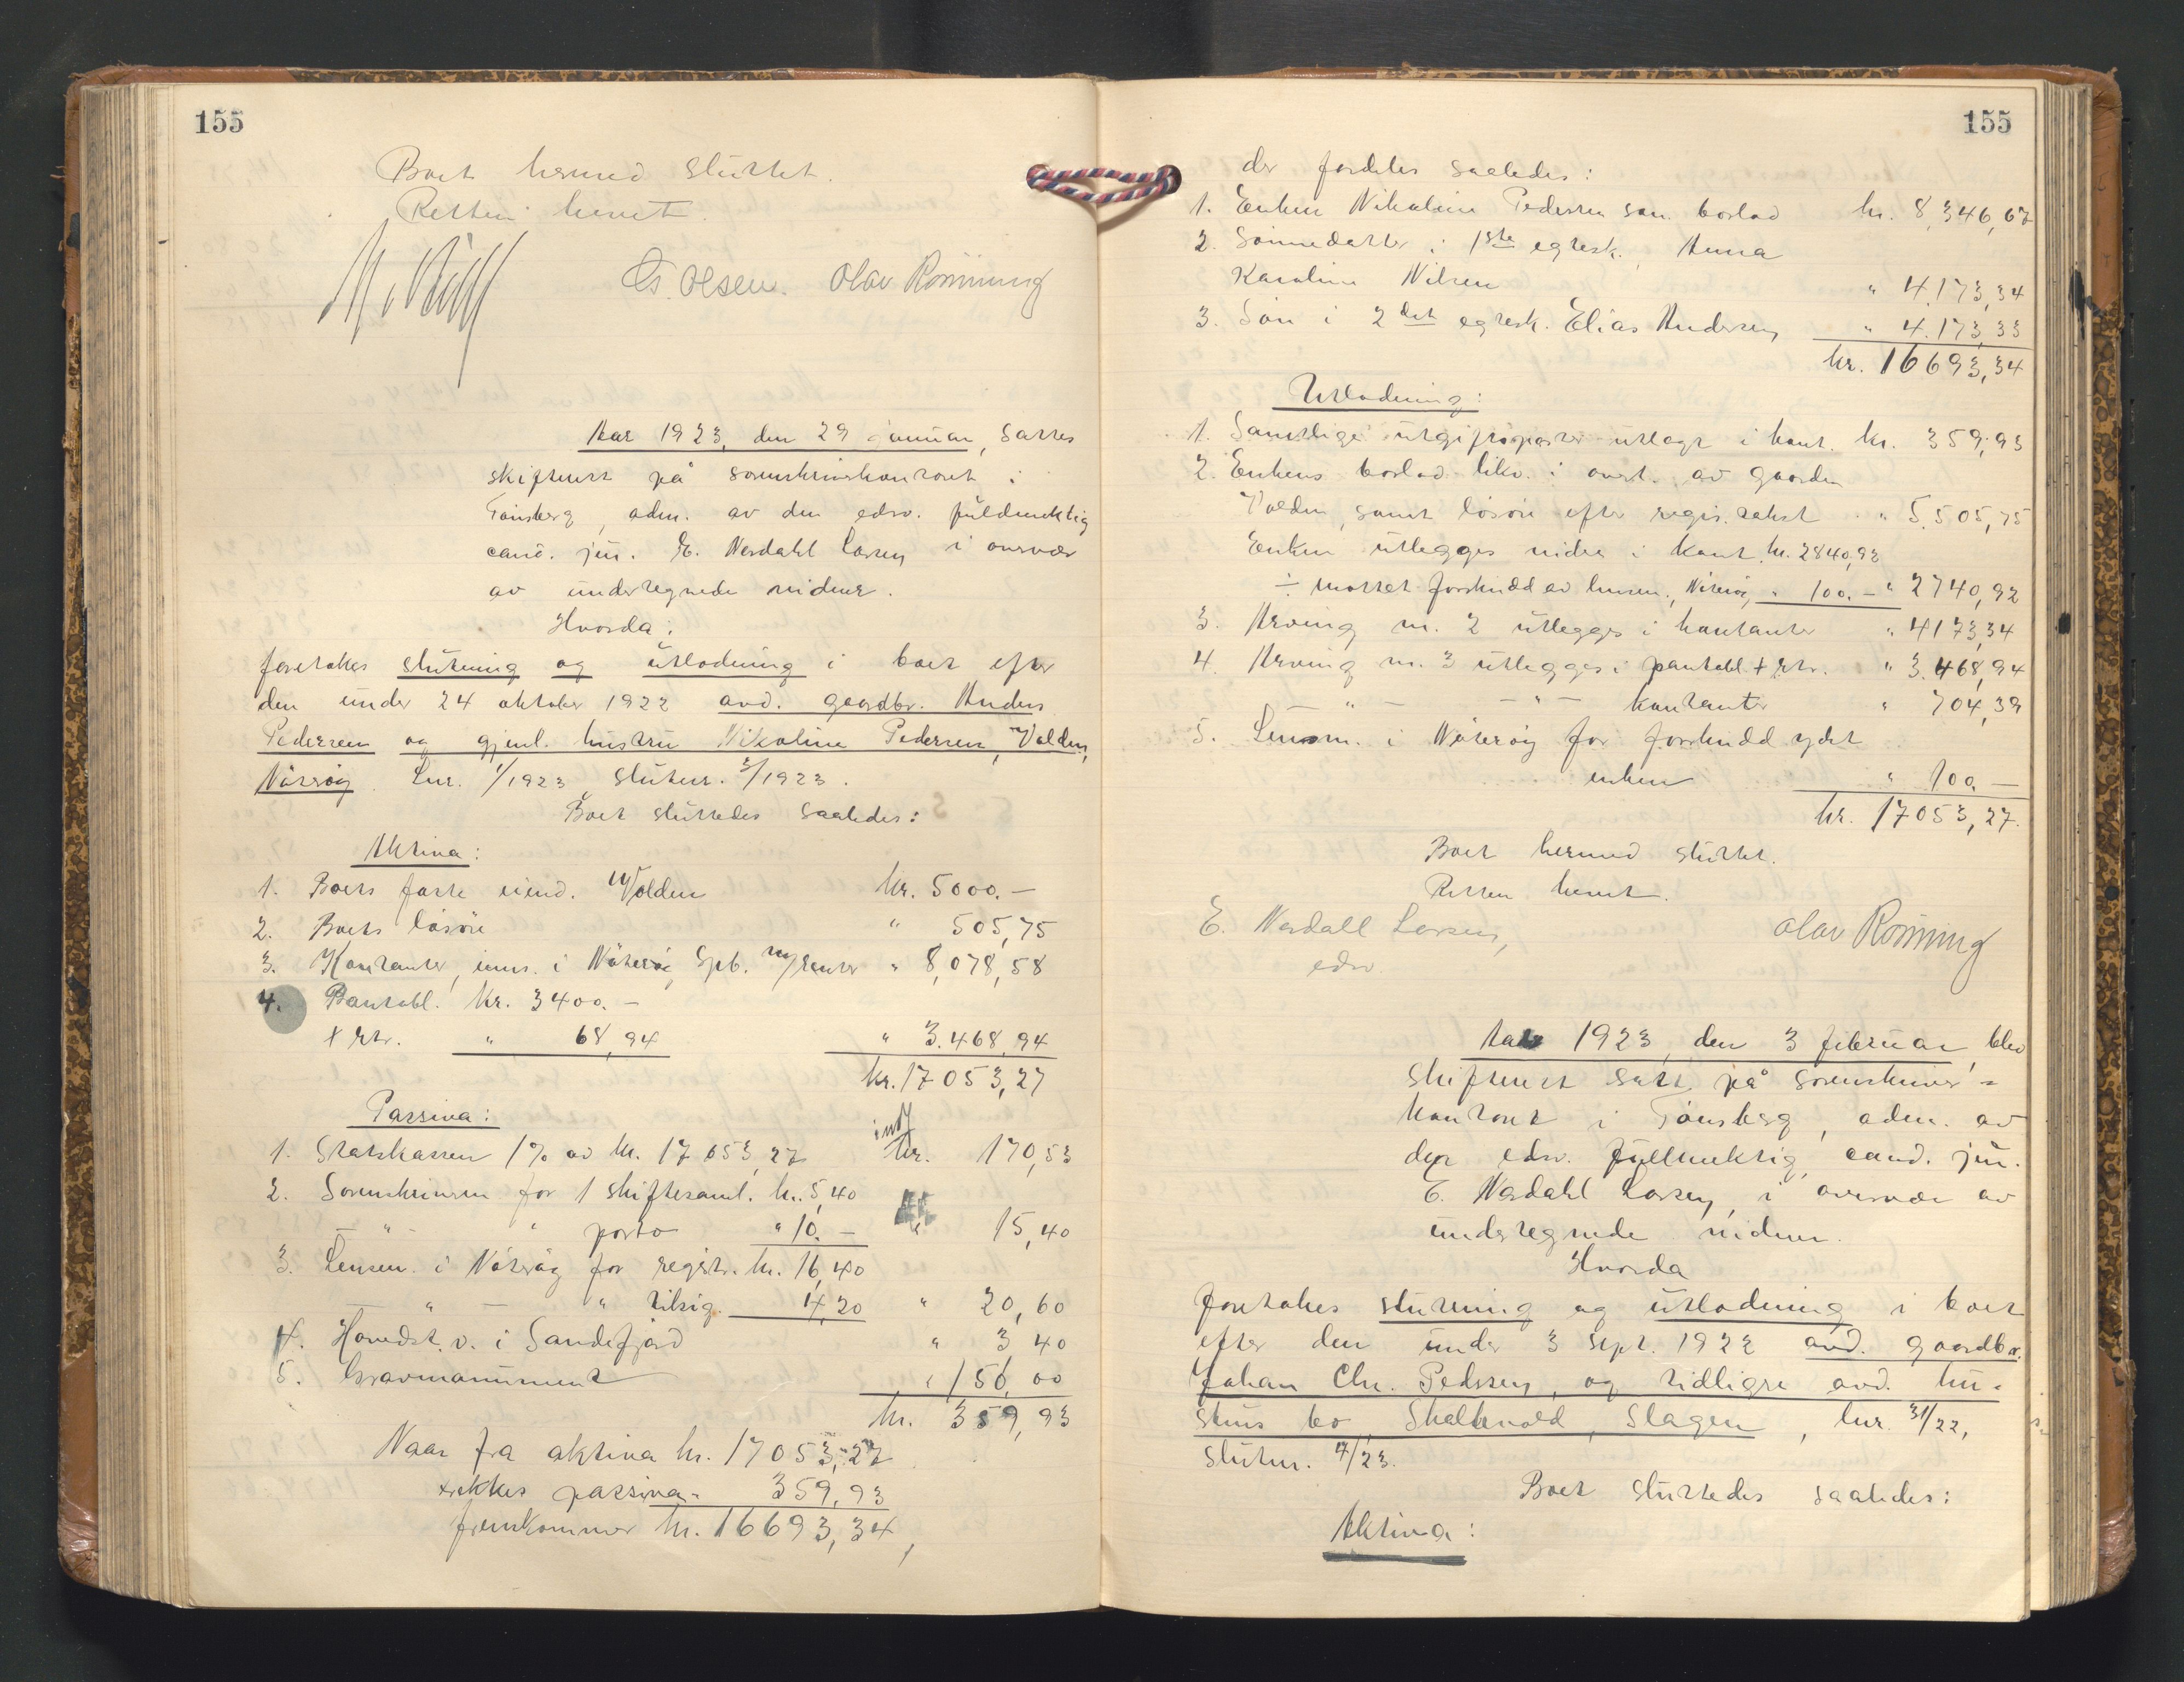 155
Boet hermed sluttet.
Retten hevet.
Cs. Olsen. Olav Rönning
Aar 1923, den 29 januar, sattes
skifterett på sorenskriverkontoret i
Tönsberg, adm. av den edsv. fuldmektig
cand. jur. E. Nesdahl Larsen i overvær
av undertegnede vidner.
Hvorda:
foretokes slutning og utlodning i boet efter
den under 24 oktober 1922 avd. gaardbr. Anders
Pedersen og gjenl. hustru Nikoline Pedersen, Volden,
Nöteröy. Lnr. 1/1923, slutnr. 5/1923.
Boet sluttedes saaledes:
Aktiva:
1. Boets faste eiend. Volden kr. 5000.-
2. Boets lösöre " 505,75
3. Kontanter, inns. i Nöteröy Spb. m/renter " 8,078,58
4. Pantobl. kr. 3400.-
+ rtr. " 68,94 " 3.468,94
kr. 17053,27
Passiva:
1. Statskassen 1% av kr. 17053,27 kr. 170,53
2. Sorenskriveren for 1 skiftesaml. kr. 5,40
-"- " porto " 10.- " 15,40
3. Lensm. i Nöteröy for registr. kr. 16,40
-"- " tilsig. 4,20 " 20,60
4. Hovedst. v. i Sandefjord " 3 40
5. Gravmonument " 150,00
kr. 359,93
Naar fra aktiva kr. 17053,27
trekkes passiva " 359,93
fremkommer kr. 16693,34,
155
der fordeles saaledes:
1. Enken Nikoline Pedersen som boslod kr. 8,346,67
2. Sönnedatter i 1ste egtesk. Anna
Karoline Nilsen " 4.173,34
3. Sön i 2det egtesk. Elias Andersen " 4.173,33
kr. 16693,34
Utlodning:
1. Samtlige utgiftsposter utlagt i kont. kr. 359,93
2. Enkens boslod likv. i overt. av gaarden
Volden, samt lösöre efter regis. takst " 5.505,75
Enken utlegges videre i kont. kr. 2840,92
÷ mottat forskudd av lensm., Nöteröy " 100.- " 2740,92
3. Arving nr. 2 utlegges i kontanter " 4173,34
4. Arving nr. 3 utlegges i pantobl. + rtr. " 3.468,94
-"- -"- kontanter " 704,39
5. Lensm. i Nöteröy for forskudd ydet
enken " 100.-
kr. 17053,27.
Boet hermed sluttet.
Retten hevet.
E. Nesdall Larsen,
edsv.
Olav Rönning
Aar 1923, den 3 februar blev
skifterett satt på sorenskriver-
kontoret i Tönsberg, adm. av
den edsv. fullmektig, cand. jur.
E. Nesdahl Larsen, i overvær av
undertegnede vidner.
Hvorda
foretokes slutning og utlodning i boet
efter den under 3 sept. 1922 avd. gaardbr.
Johan Chr. Pedersen, og tidligre avd. hu-
strus bo, Skallevold, Slagen, lnr. 31/22,
slutnr. 7/23.
Boet sluttedes saaledes:
Aktiva: